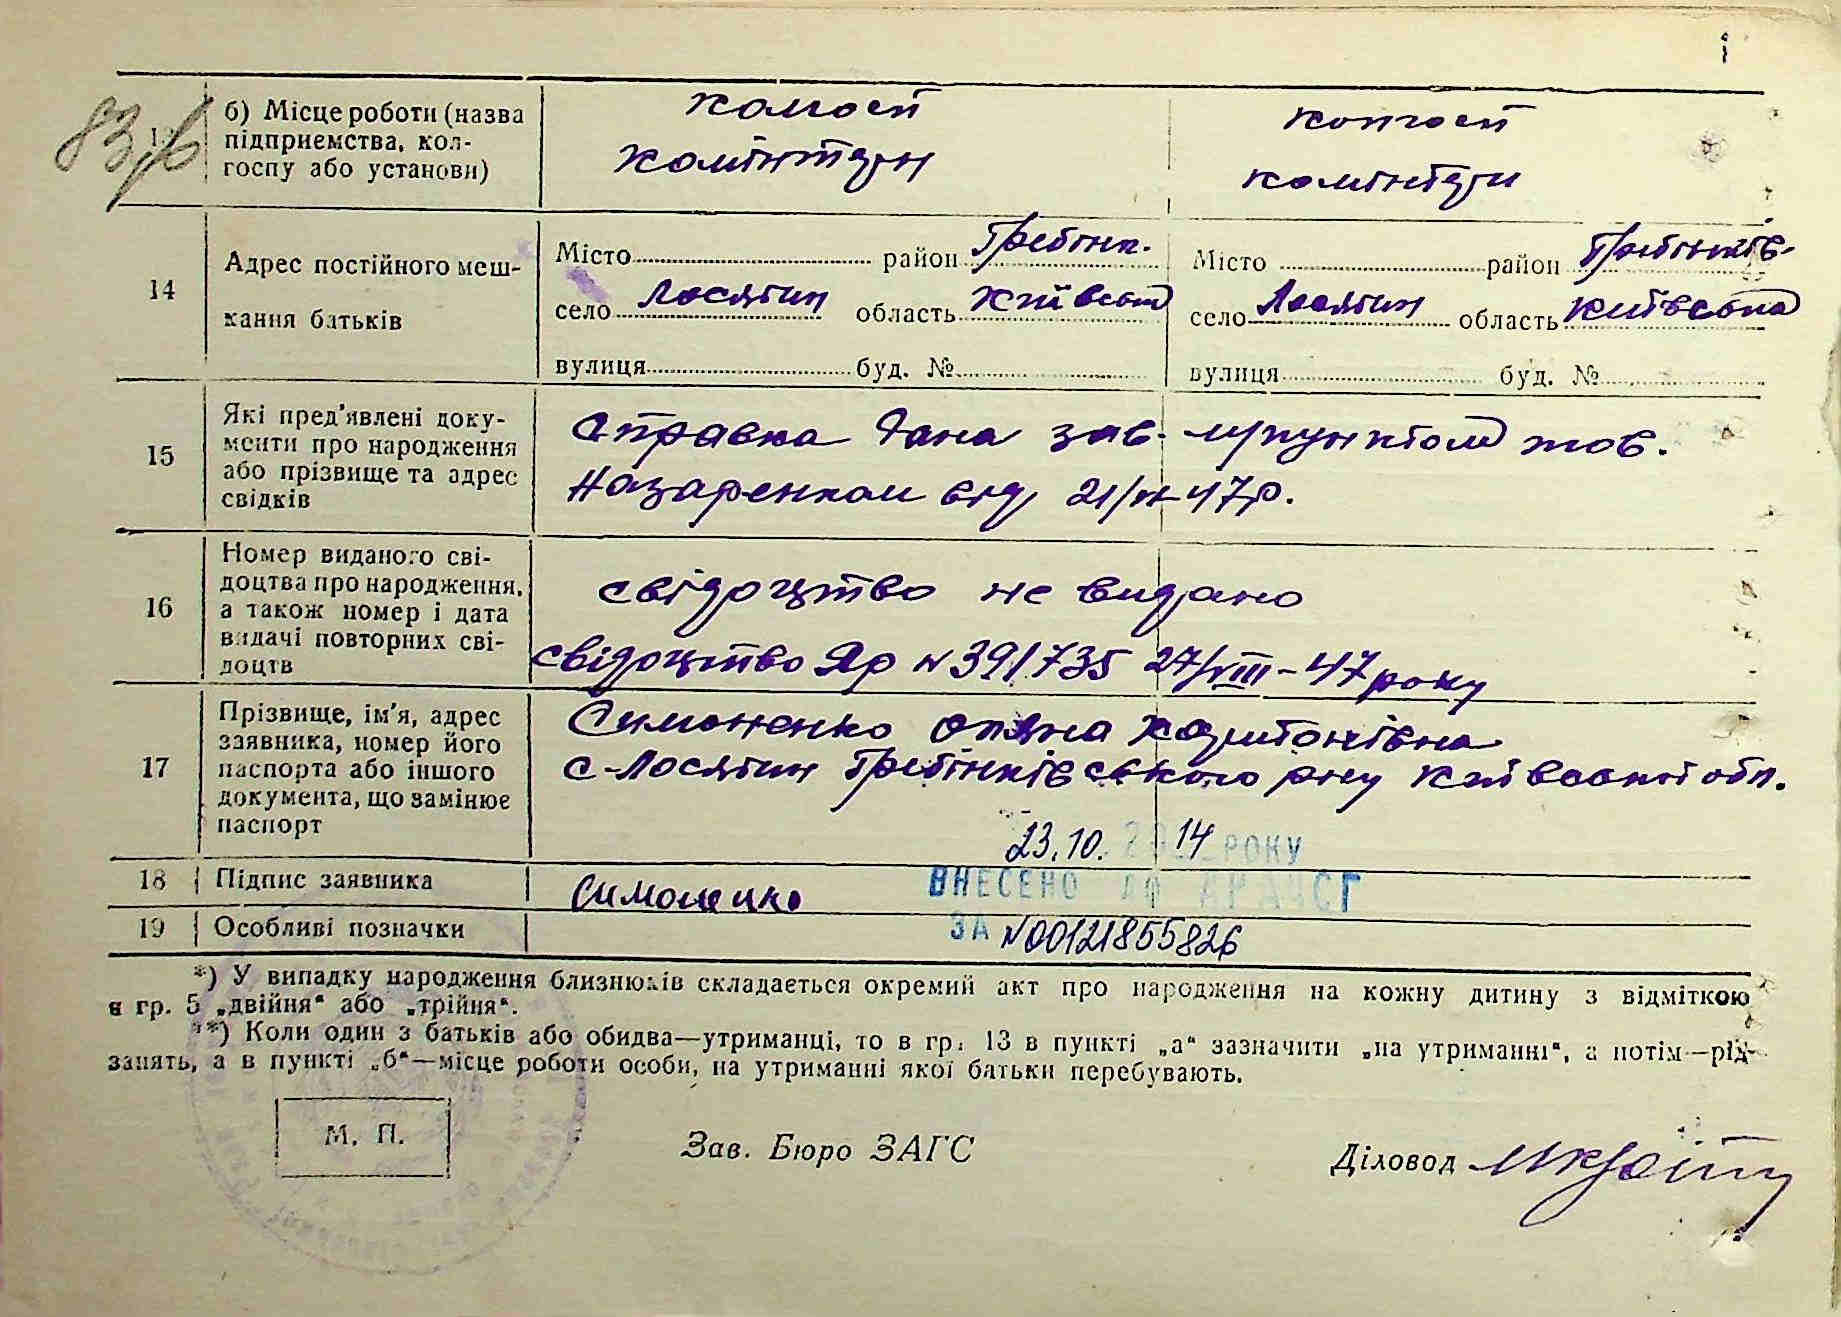 83
б) Місце роботи (назва підприємства, колгоспу або установи)
колгосп
комінтерн
колгосп
комінтерн
14
Адрес постійного мешкання батьків
Місто район Гребінк.
село Лосятин область Київська
вулиця буд. №
Місто район Гребінків-
село Лосятин область Київська
вулиця буд. №
15
Які пред'явлені документи про народження або прізвище та адрес свідків
Справка дана зав. тов.
Назаренком від 21/ 47р.
16
Номер виданого свідоцтва про народження, а також номер і дата видачі повторних свідоцтв
свідоцтво не видано
свідоцтво Яр N 391735 27/VIII-47 року
17
Прізвище, ім'я, адрес заявника, номер його паспорта або іншого документа, що замінює паспорт
Симоненко Харитонівна
с-Лосятин Гребінківського р-ну Київської обл.
23.10. 2014 РОКУ
18
Підпис заявника
Симоненко
ВНЕСЕНО ДО ДРАЦСГ
19
Особливі позначки
ЗА N00121855826
*) У випадку народження близнюків складається окремий акт про народження на кожну дитину з відміткою
в гр. 5 „двійня“ або „трійня“.
**) Коли один з батьків або обидва—утриманці, то в гр. 13 в пункті „а“ зазначити „на утриманні“, а потім—рід
занять, а в пункті „б“—місце роботи особи, на утриманні якої батьки перебувають.
М. П.
Зав. Бюро ЗАГС
Діловод